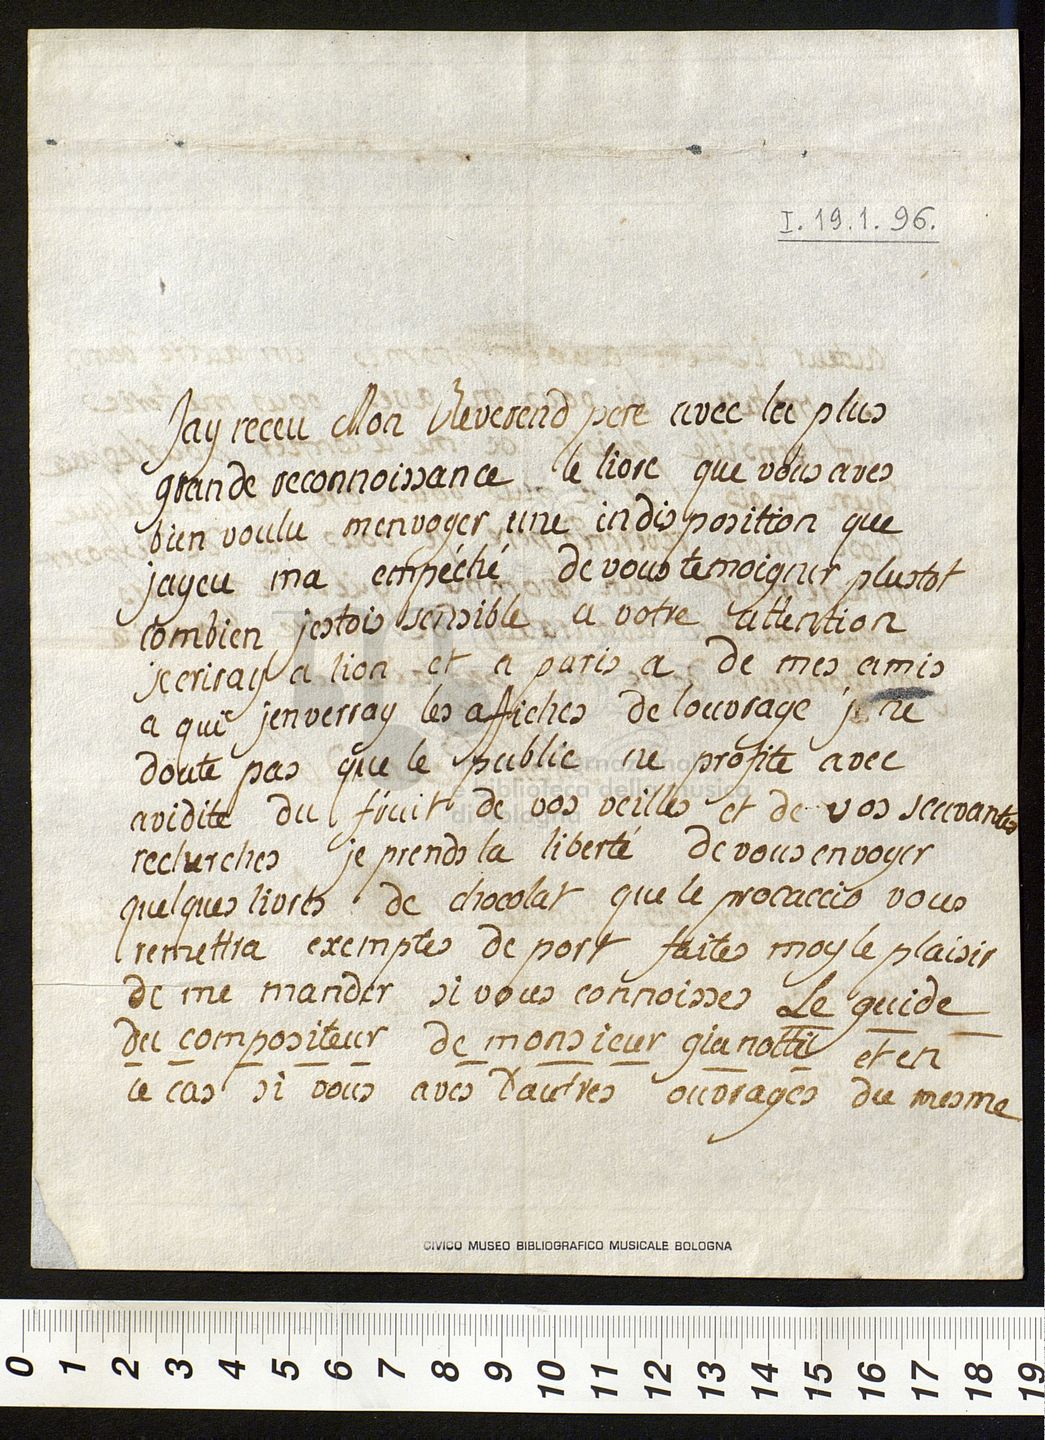 I. 19.1.96.
Jay receu Mon Reverend pere avec la plus
grande reconnoissance le livre que vous aves
bien voulu menvoyer une indisposition que
jayeu ma empéché de vous temoigner plustot
combien jestois sensible a votre attention
jecriray a lion et a paris a de mes amis
a qui jenverray les affiches de louvrage je ne
doute pas que le public ne profite avec
avidite du fruit de vos veilles et de vos scavantes
recherches je prends la liberté de vous envoyer
quelques livres de chocolat que le procaccio vous
remettra exemptes de port faites moy le plaisir
de me mander si vous connoisses Le guide
du compositeur de monsieur gianotti et en
ce cas si vous aves dautres ouvrages du mesme
CIVICO MUSEO BIBLIOGRAFICO MUSICALE BOLOGNA
0 1 2 3 4 5 6 7 8 9 10 11 12 13 14 15 16 17 18 19